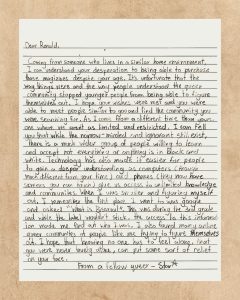 Dear Ronald,
Coming from someone who lives in a similar home environment,
I can understand your desperation to being able to purchase
those magazines despite your age. It's unfortunate that the
way things were and the way people understood the queer
community stopped younger people from being able to figure
themselves out. I hope your wishes were met and you were
able to meet people similar to you and find the community you
were searching for. As I come from a different time than yours,
one where we aren't as limited and restricted, I can tell
you that while the narrow-minded and ignorant still exist,
there is a much wider group of people willing to learn
and accept that everything or anything is in Black and
White. Technology has also made it easier for people
to gain a deeper understanding as computers browse
much different from your time and phones (tiny hand
screens you can hold) give us access to unlimited knowledge
and communities. When I was six and figuring myself
out, I remember the first place I went to was google
and asked "what is bisexuality". This was during the 5th grade
and while the label wouldn't stick, the access to this information
made me find out who I was. I also found many online
queer community of people like me trying to figure themselves
out. I hope that knowing no one has to feel alone, that
you were never truly alone, can put some sort of relief
on your face.
From a fellow queer - Star